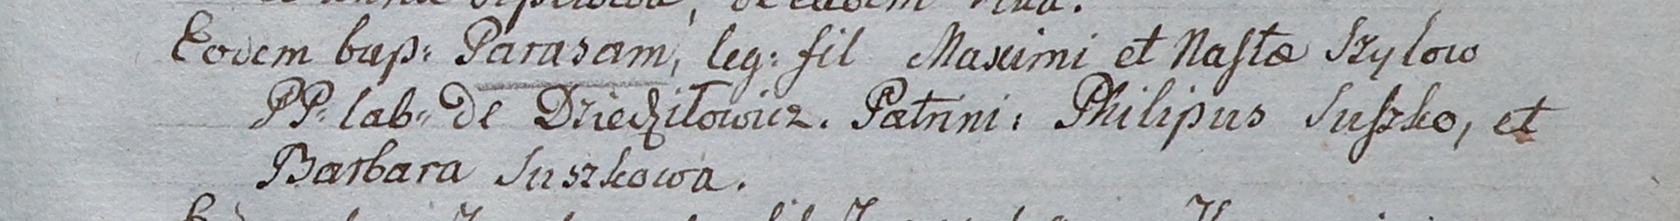 Eodem bap: Parasam, leg: fil Maximi et Nastæ Szylow
PP: lab: de Dziedziłowicz. Patrini: Philipus Suszko, et
Barbara Suszkowa.